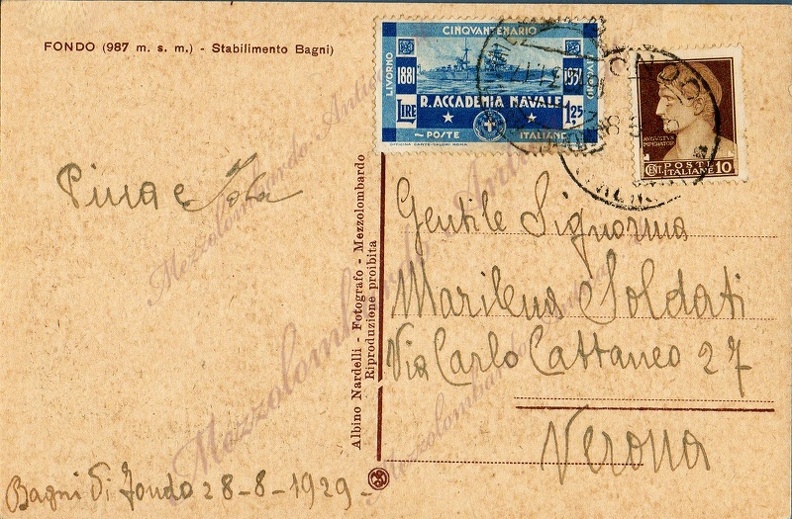 FONDO (987 m. s. m.) - Stabilimento Bagni)
CINQVANTENARIO
LIVORNO
1881
1931
LIRE
R. ACCADEMIA NAVALE
1,25
POSTE
ITALIANE
OFFICINA CARTE-VALORI ROMA
CENT.
POSTE
ITALIANE
10
FONDO
Pina e
Gentile Signorina
Marilena Soldati
Via Carlo Cattaneo 27
Verona
Albino Nardelli - Fotografo - Mezzolombardo
Riproduzione proibita
Bagni di Fondo 28-8-1929-
Mezzolombardo
Mezzolombardo
Mezzolombardo